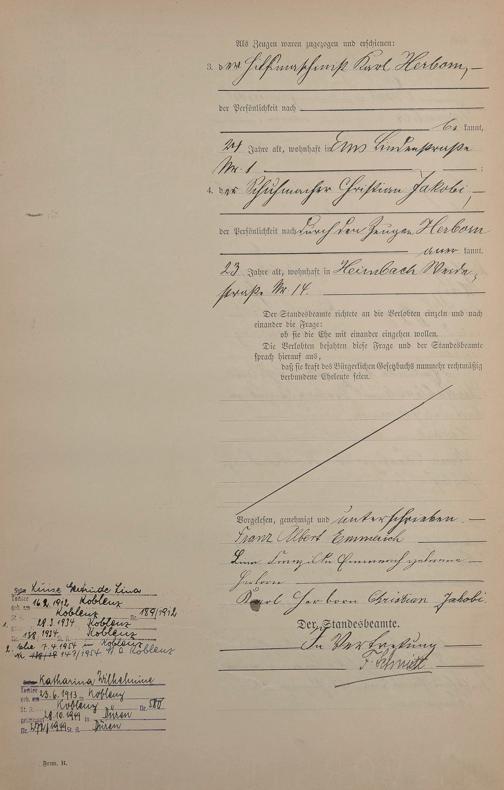 Als Zeugen waren zugezogen und erschienen:
3. der Hilfsmaschinist Karl Herborn,
der Persönlichkeit nach
be kannt,
24 Jahre alt, wohnhaft in Ems Lindenstraße
Nr. 1 ;
4. der Schuhmacher Christian Jakobi,
der Persönlichkeit nach durch den Zeugen Herborn
aner kannt,
23 Jahre alt, wohnhaft in Heimbach Weide,
straße Nr. 14.
Der Standesbeamte richtete an die Verlobten einzeln und nach
einander die Frage:
ob sie die Ehe mit einander eingehen wollen.
Die Verlobten bejahten diese Frage und der Standesbeamte
sprach hierauf aus,
daß sie kraft des Bürgerlichen Gesetzbuchs nunmehr rechtmäßig
verbundene Eheleute seien.
Vorgelesen, genehmigt und unterschrieben.
Franz Albert Emmerich
Emmerich geborene
Herborn
Karl Herborn Christian Jakobi
Der Standesbeamte.
In Vertretung
Schmitt
Luise Gertrude Lina
16.2.1912 Koblenz
Koblenz Nr. 189/1912
28.3.1934 Koblenz
Nr. 138/1934 Koblenz
2. Ehe 7.4.1954 in Koblenz
147/1954 Koblenz
Katharina Wilhelmine
geb. am 23.6.1913 in Koblenz
St. A. Koblenz Nr. 580
28.10.1949 in Düren
Nr. /1949 St. A. Düren
Form. B.